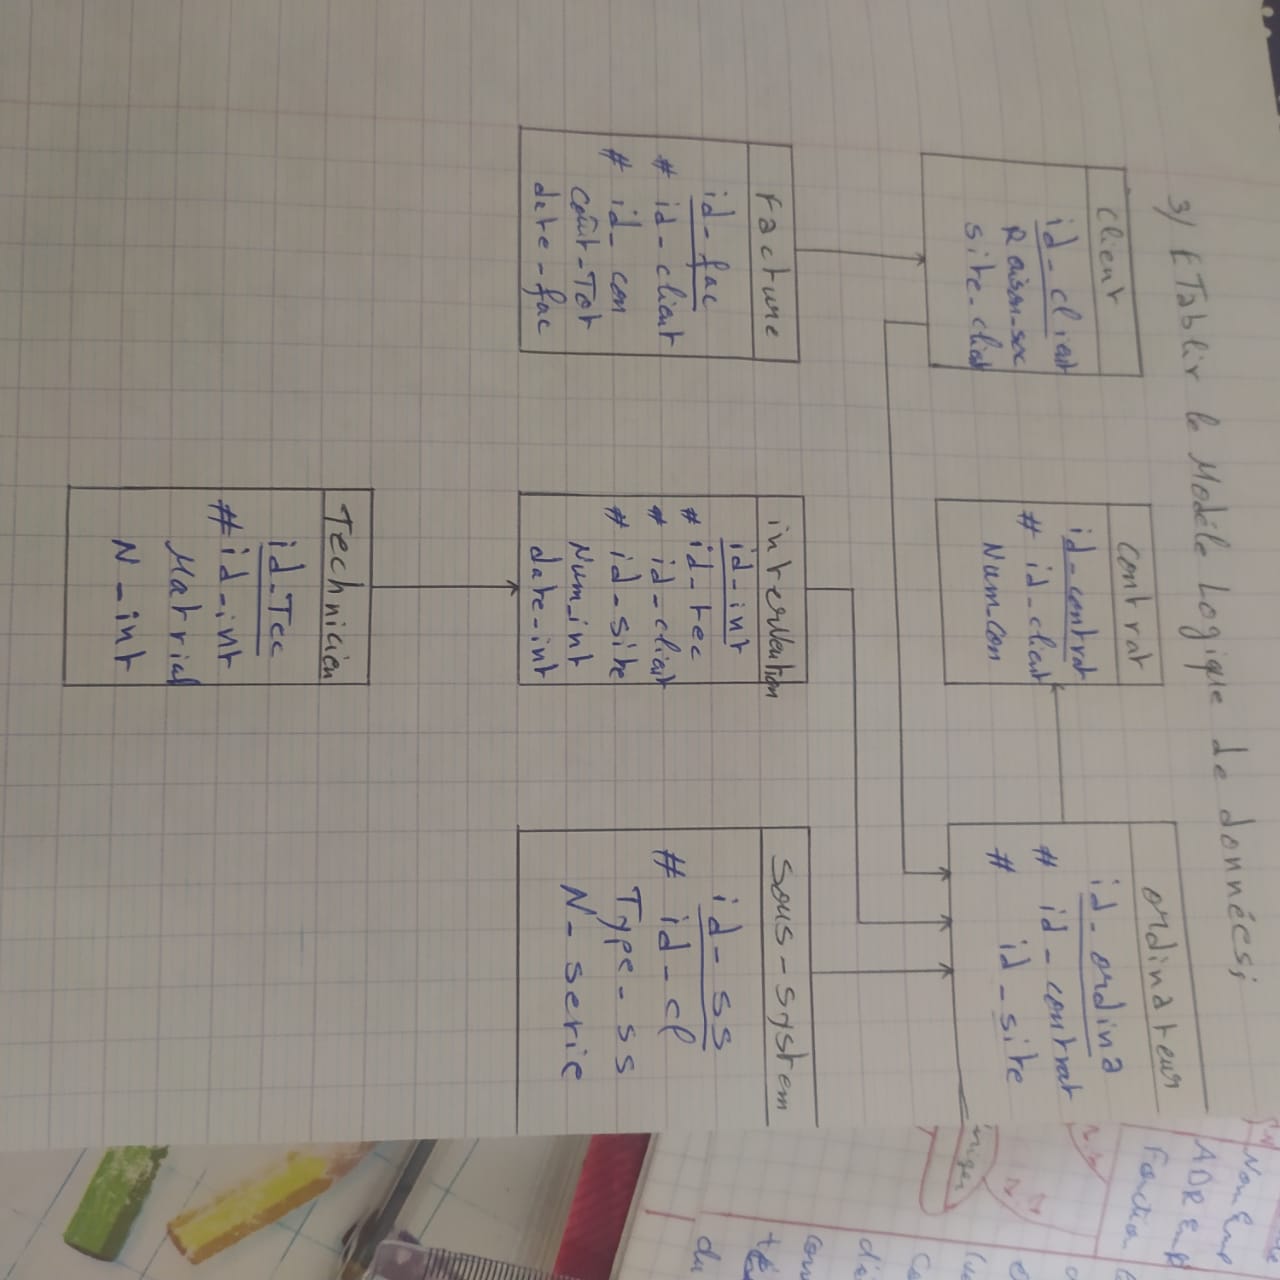 3) ETablir le Modéle Logique de données;
client
id_client
Raison-soc
site_client
contrat
id_contrat
# id_client
Num_con
ordinateur
id_ordina
# id_contrat
# id_site
Facture
id_fac
# id_client
# id_con
coût-Tot
date_fac
intervention
id_int
# id_tec
# id_client
# id_site
Num_int
date_int
sous-system
id_ss
# id_cl
Type_ss
N_serie
Technicien
id_Tec
# id_int
Matrial
N_int
Nom Emp
ADR Emp
Fonction
du